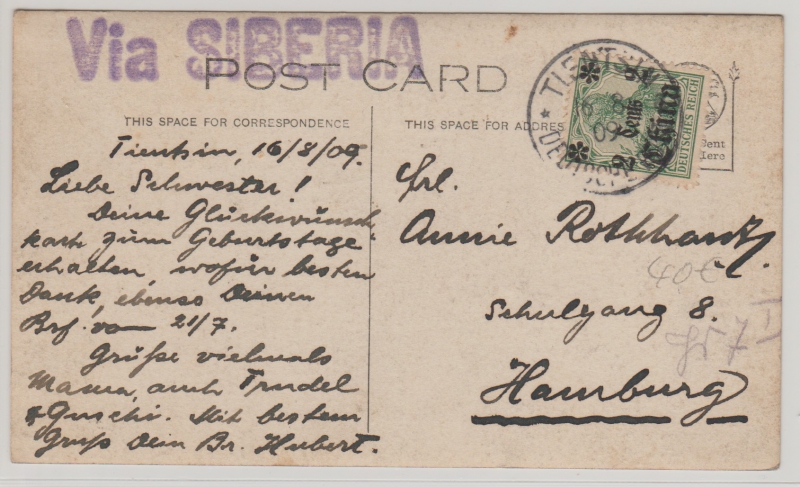 Via SIBERIA
POST CARD
THIS SPACE FOR CORRESPONDENCE
Tientsin, 16/8/09.
Liebe Schwester!
Deine Glückwunsch-
karte zum Geburtstage
erhalten, wofür besten
Dank, ebenso Deinen
Brf. vom 21/7.
Grüße vielmals
Mama, auch Trudel
& Guschi. Mit bestem
Gruß Dein Br. Hubert.
THIS SPACE FOR ADDRES
TIENTSIN
16 8
09
DEUTSCHE
2 Cents
China
DEUTSCHES REICH
Frl.
Annie Rothhardt,
Schulgang 8.
Hamburg
40€